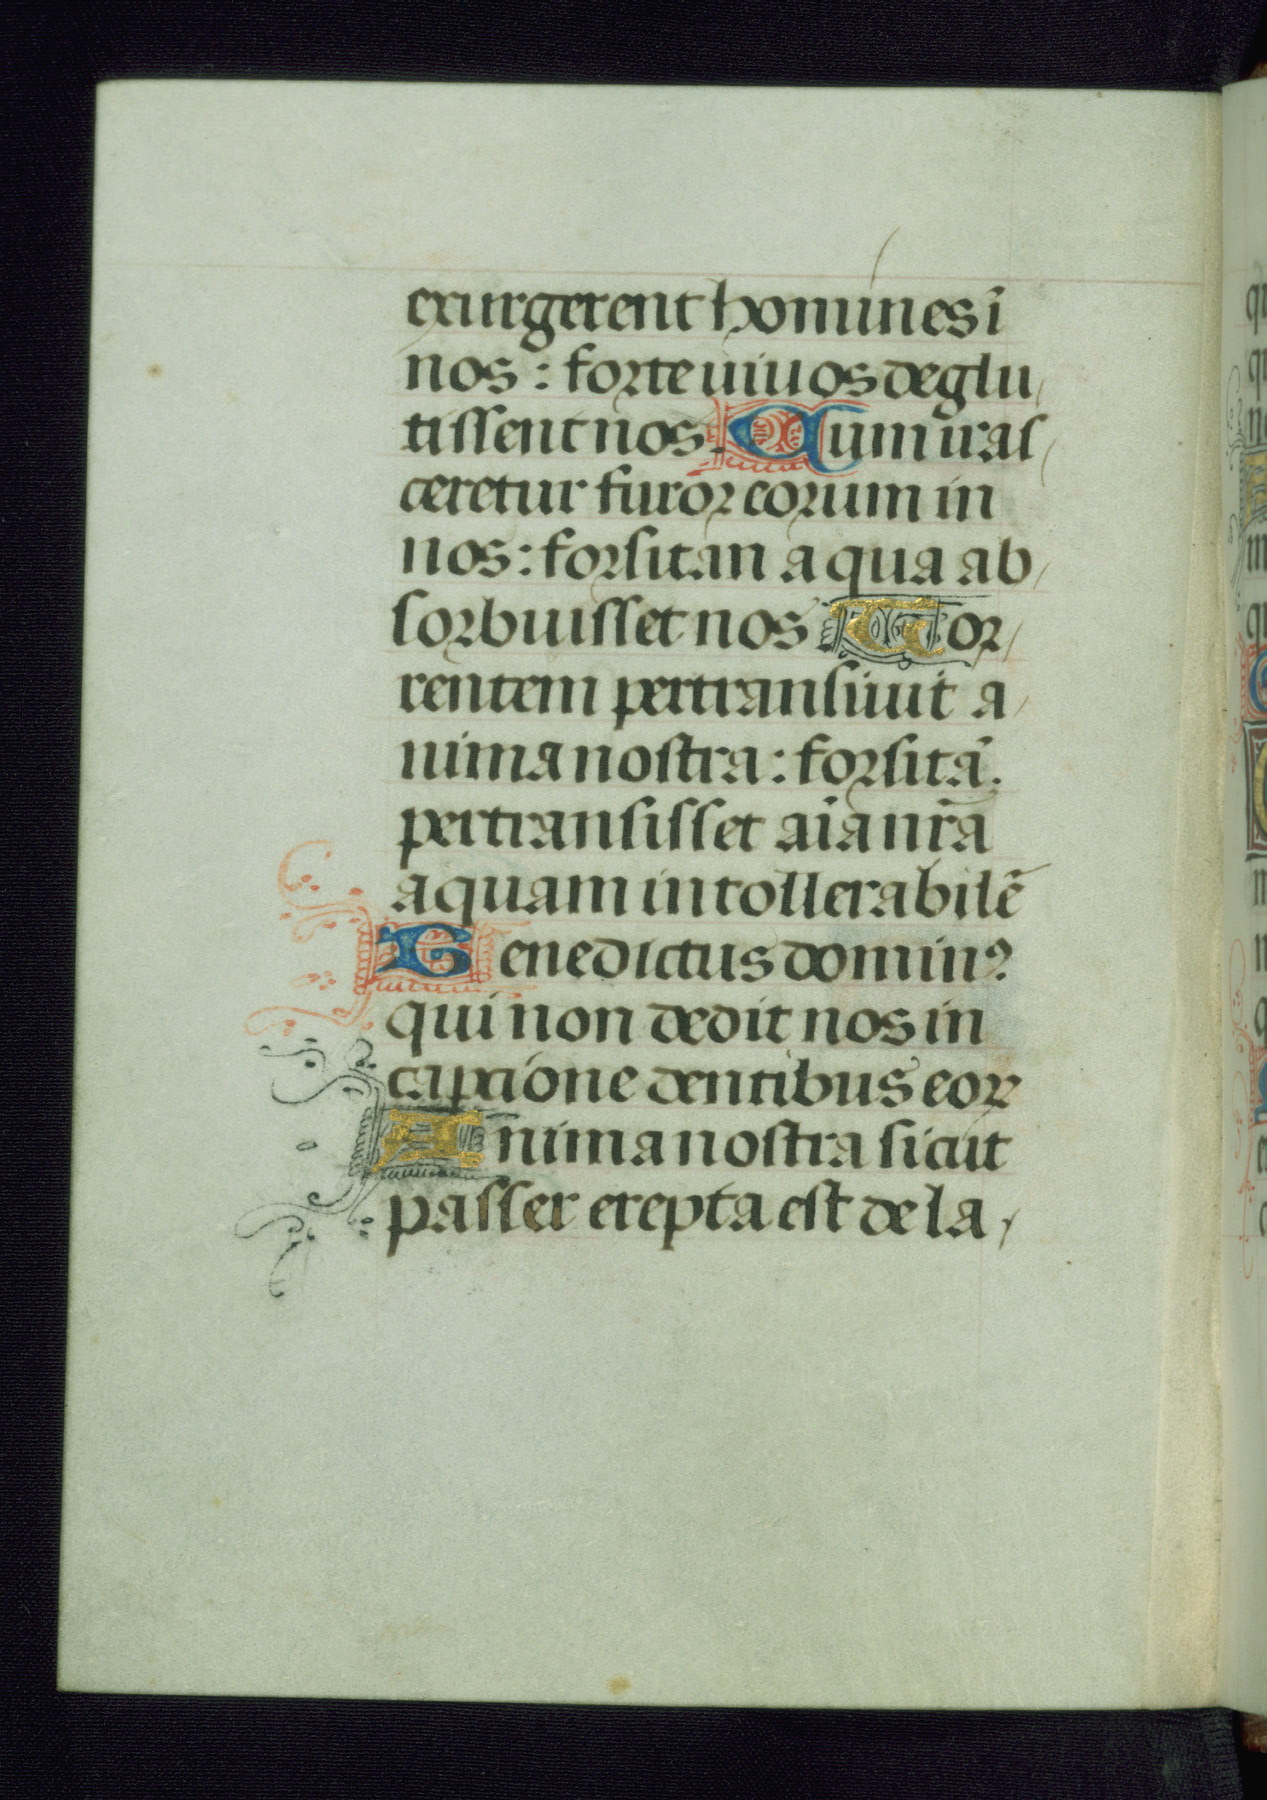 exurgerent homines ī
nos : forte uiuos deglu
tissent nos. Cum iras
ceretur furor eorum in
nos : forsitan aqua ab
sorbuisset nos Tor
rentem pertransiuit a
nima nostra : forsitā.
pertransisset aīa nr̄a
aquam intollerabilē
Benedictus dominꝰ
qui non dedit nos in
captione dentibus eoꝝ
Anima nostra sicut
passer erepta est de la